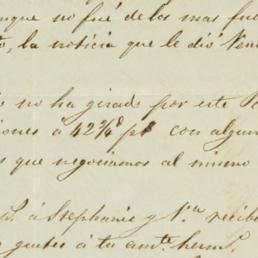 no fué de los mas fue
, la noticia que le dió Ven
no ha girado por este
iones á 42¾ p% con algun
s que negociamos al mismo
á Stephanie y recibe
gustes á tu amte. hermo.